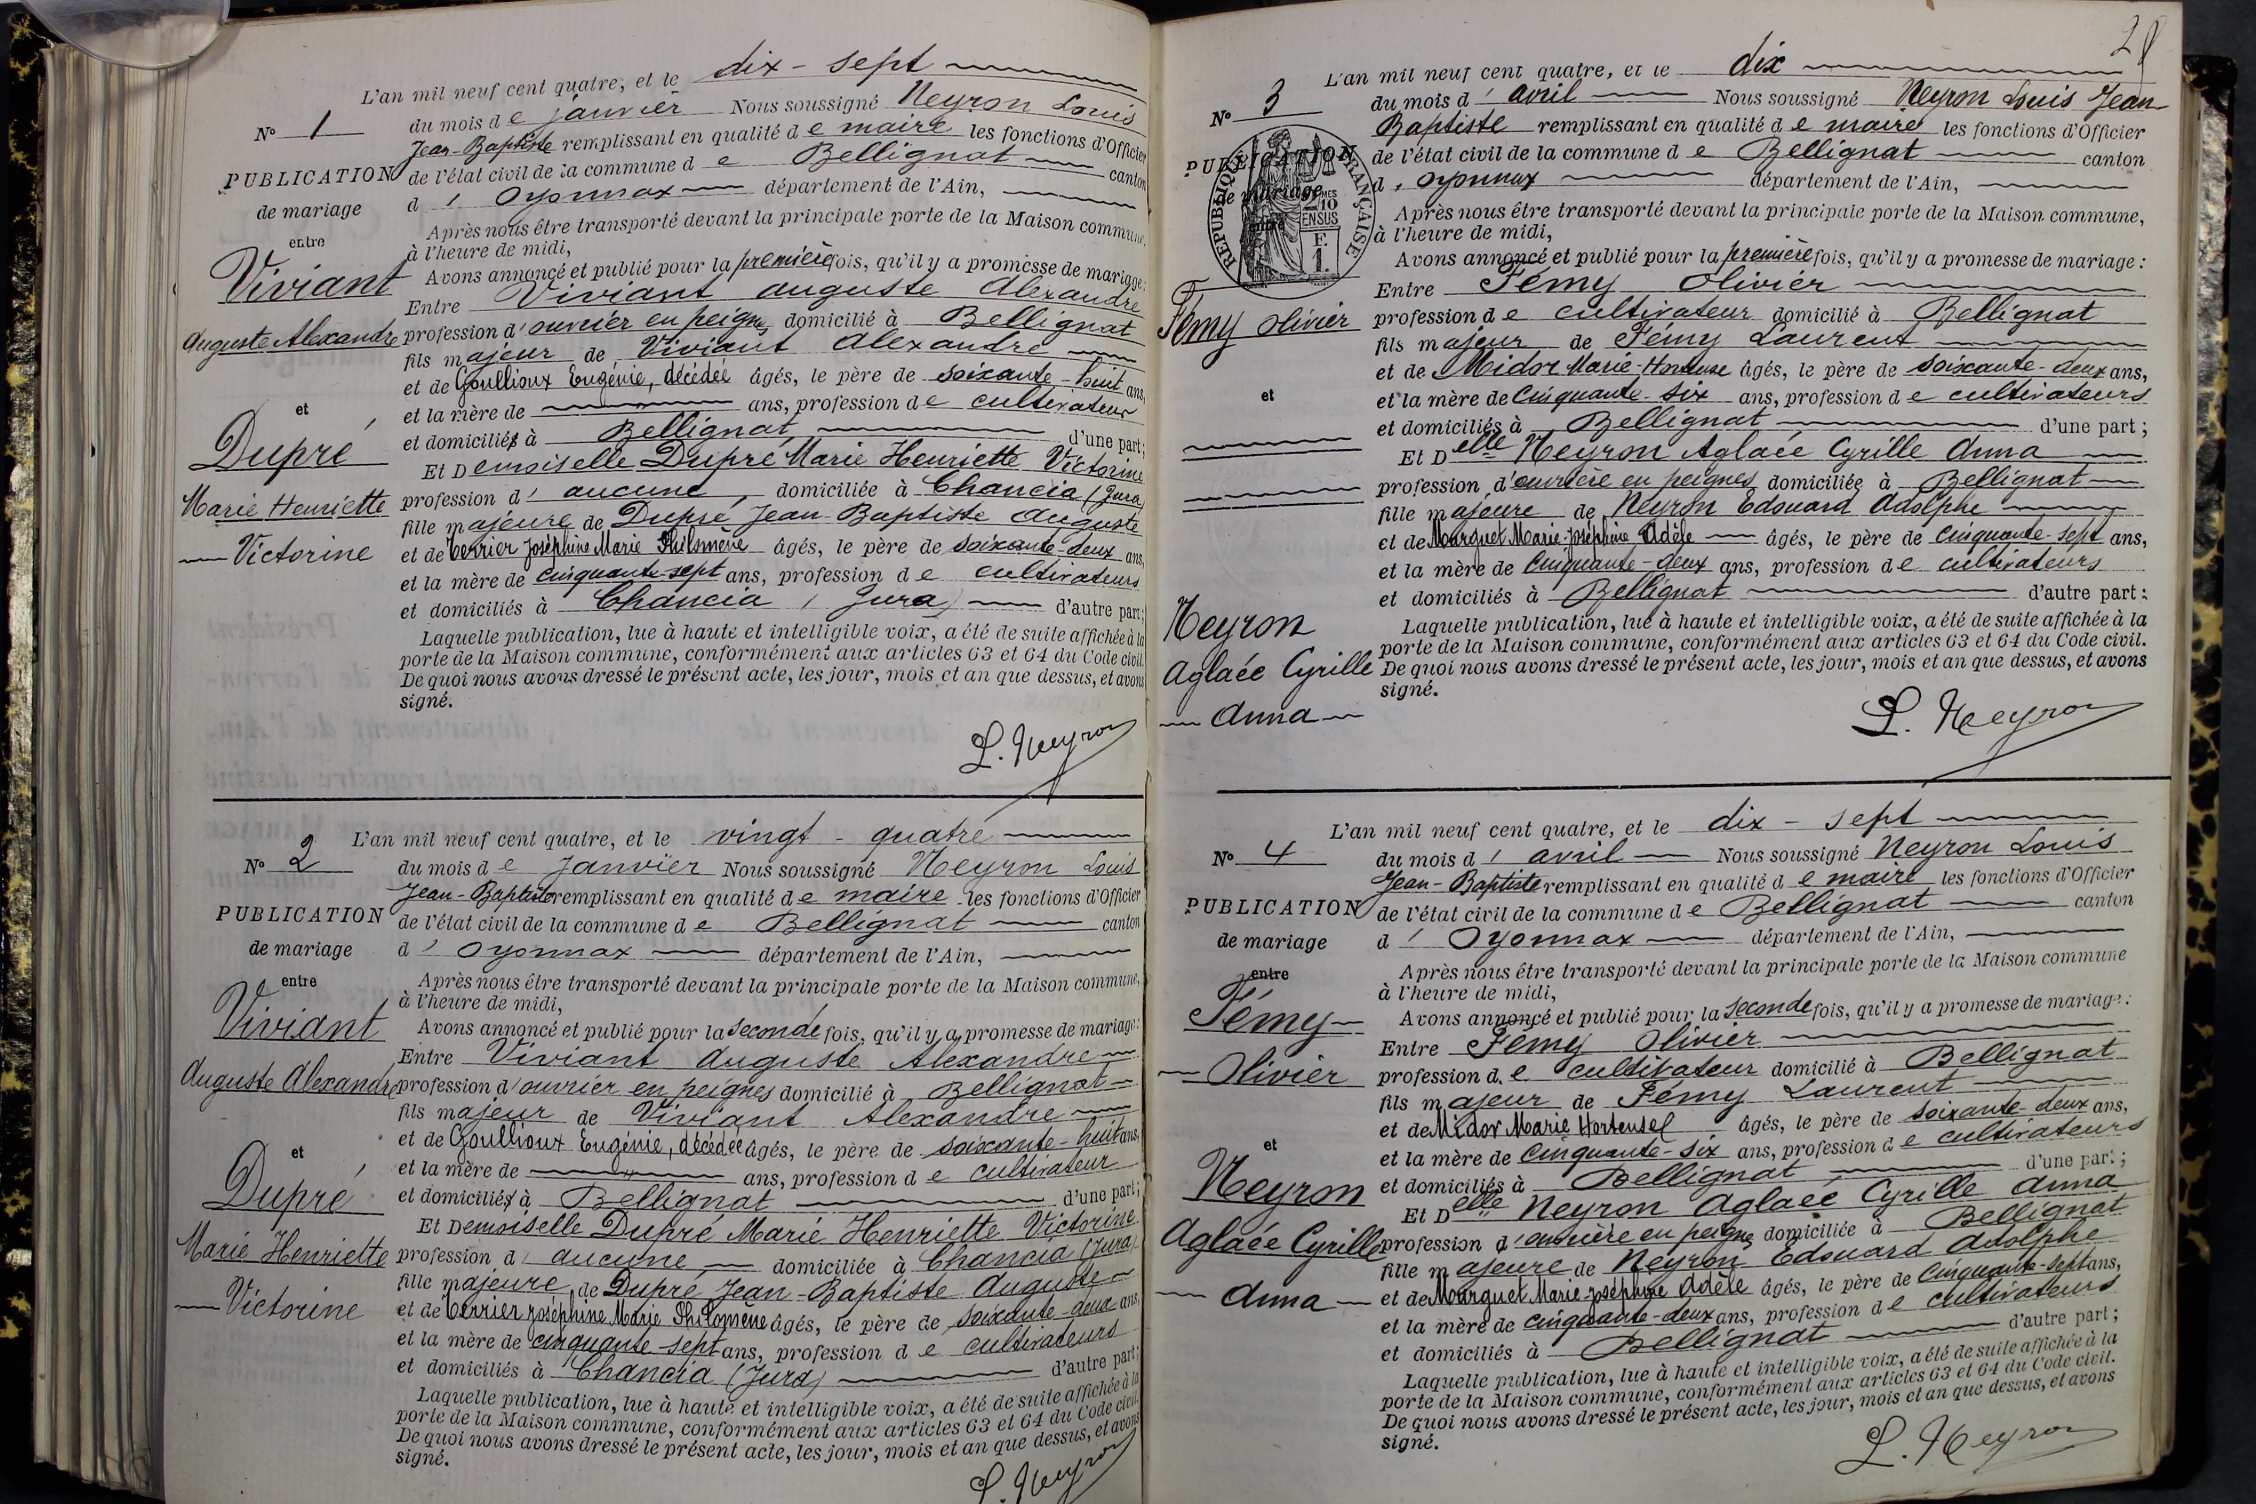 L'an mil neuf cent quatre, et le dix-sept
N° 1
du mois de janvier Nous soussigné Neyron Louis
Jean-Baptiste remplissant en qualité de maire les fonctions d'Officier
PUBLICATION
de l'état civil de la commune de Bellignat canton
de mariage
d'Oyonnax département de l'Ain,
entre
Après nous être transporté devant la principale porte de la Maison commune,
à l'heure de midi,
Viviant
Avons annoncé et publié pour la première fois, qu'il y a promesse de mariage:
Entre Viviant Auguste Alexandre
Auguste Alexandre
profession d'ouvrier en peignes domicilié à Bellignat
fils majeur de Viviant Alexandre
et de Goullioux Eugénie, décédée âgés, le père de soixante-huit ans,
et
et la mère de ans, profession de cultivateur
Dupré
et domiciliés à Bellignat d'une part;
Et Demoiselle Dupré Marie Henriette Victorine
Marie Henriette
profession d'aucune, domiciliée à Chancia (Jura)
fille majeure de Dupré Jean-Baptiste Auguste
Victorine
et de Verrier Joséphine Marie Philomène âgés, le père de soixante-deux ans,
et la mère de cinquante-sept ans, profession de cultivateurs
et domiciliés à Chancia (Jura) d'autre part;
Laquelle publication, lue à haute et intelligible voix, a été de suite affichée à la
porte de la Maison commune, conformément aux articles 63 et 64 du Code civil.
De quoi nous avons dressé le présent acte, les jour, mois et an que dessus, et avons
signé.
L. Neyron
L'an mil neuf cent quatre, et le vingt-quatre
N° 2
du mois de janvier Nous soussigné Neyron Louis
Jean-Baptiste remplissant en qualité de maire les fonctions d'Officier
PUBLICATION
de l'état civil de la commune de Bellignat canton
de mariage
d'Oyonnax département de l'Ain,
entre
Après nous être transporté devant la principale porte de la Maison commune,
à l'heure de midi,
Viviant
Avons annoncé et publié pour la seconde fois, qu'il y a promesse de mariage:
Entre Viviant Auguste Alexandre
Auguste Alexandre
profession d'ouvrier en peignes domicilié à Bellignat
fils majeur de Viviant Alexandre
et de Goullioux Eugénie, décédée âgés, le père de soixante-huit ans,
et
et la mère de ans, profession de cultivateur
Dupré
et domiciliés à Bellignat d'une part;
Et Demoiselle Dupré Marie Henriette Victorine
Marie Henriette
profession d'aucune, domiciliée à Chancia (Jura)
fille majeure de Dupré Jean-Baptiste Auguste
Victorine
et de Verrier Joséphine Marie Philomène âgés, le père de soixante-deux ans,
et la mère de cinquante-sept ans, profession de cultivateurs
et domiciliés à Chancia (Jura) d'autre part;
Laquelle publication, lue à haute et intelligible voix, a été de suite affichée à la
porte de la Maison commune, conformément aux articles 63 et 64 du Code civil.
De quoi nous avons dressé le présent acte, les jour, mois et an que dessus, et avons
signé.
L. Neyron
L'an mil neuf cent quatre, et le dix
N° 3
du mois d'avril Nous soussigné Neyron Louis Jean
Baptiste remplissant en qualité de maire les fonctions d'Officier
PUBLICATION
de l'état civil de la commune de Bellignat canton
de mariage
d'Oyonnax département de l'Ain,
entre
RÉPUBLIQUE FRANÇAISE
2/10
EN SUS
F.
1.
Après nous être transporté devant la principale porte de la Maison commune,
à l'heure de midi,
Avons annoncé et publié pour la première fois, qu'il y a promesse de mariage:
Entre Fémy Olivier
Fémy Olivier
profession de cultivateur domicilié à Bellignat
fils majeur de Fémy Laurent
et de Midor Marie-Hortense âgés, le père de soixante-deux ans,
et
et la mère de cinquante-six ans, profession de cultivateurs
et domiciliés à Bellignat d'une part;
Et Delle Neyron Aglaée Cyrille Anna
profession d'ouvrière en peignes domiciliée à Bellignat
fille majeure de Neyron Edouard Adolphe
et de Mourguet Marie-Joséphine Adèle âgés, le père de cinquante-sept ans,
et la mère de cinquante-deux ans, profession de cultivateurs
et domiciliés à Bellignat d'autre part:
Neyron
Aglaée Cyrille
Anna
Laquelle publication, lue à haute et intelligible voix, a été de suite affichée à la
porte de la Maison commune, conformément aux articles 63 et 64 du Code civil.
De quoi nous avons dressé le présent acte, les jour, mois et an que dessus, et avons
signé.
L. Neyron
L'an mil neuf cent quatre, et le dix-sept
N° 4
du mois d'avril Nous soussigné Neyron Louis
Jean-Baptiste remplissant en qualité de maire les fonctions d'Officier
PUBLICATION
de l'état civil de la commune de Bellignat canton
de mariage
d'Oyonnax département de l'Ain,
entre
Après nous être transporté devant la principale porte de la Maison commune
à l'heure de midi,
Fémy
Avons annoncé et publié pour la seconde fois, qu'il y a promesse de mariage:
Entre Fémy Olivier
Olivier
profession de cultivateur domicilié à Bellignat
fils majeur de Fémy Laurent
et de Midor Marie Hortense âgés, le père de soixante-deux ans,
et
et la mère de cinquante-six ans, profession de cultivateurs
et domiciliés à Bellignat d'une part;
Neyron
Et Delle Neyron Aglaée Cyrille Anna
Aglaée Cyrille
profession d'ouvrière en peignes domiciliée à Bellignat
fille majeure de Neyron Edouard Adolphe
Anna
et de Mourguet Marie-Joséphine Adèle âgés, le père de cinquante-sept ans,
et la mère de cinquante-deux ans, profession de cultivateurs
et domiciliés à Bellignat d'autre part;
Laquelle publication, lue à haute et intelligible voix, a été de suite affichée à la
porte de la Maison commune, conformément aux articles 63 et 64 du Code civil.
De quoi nous avons dressé le présent acte, les jour, mois et an que dessus, et avons
signé.
L. Neyron